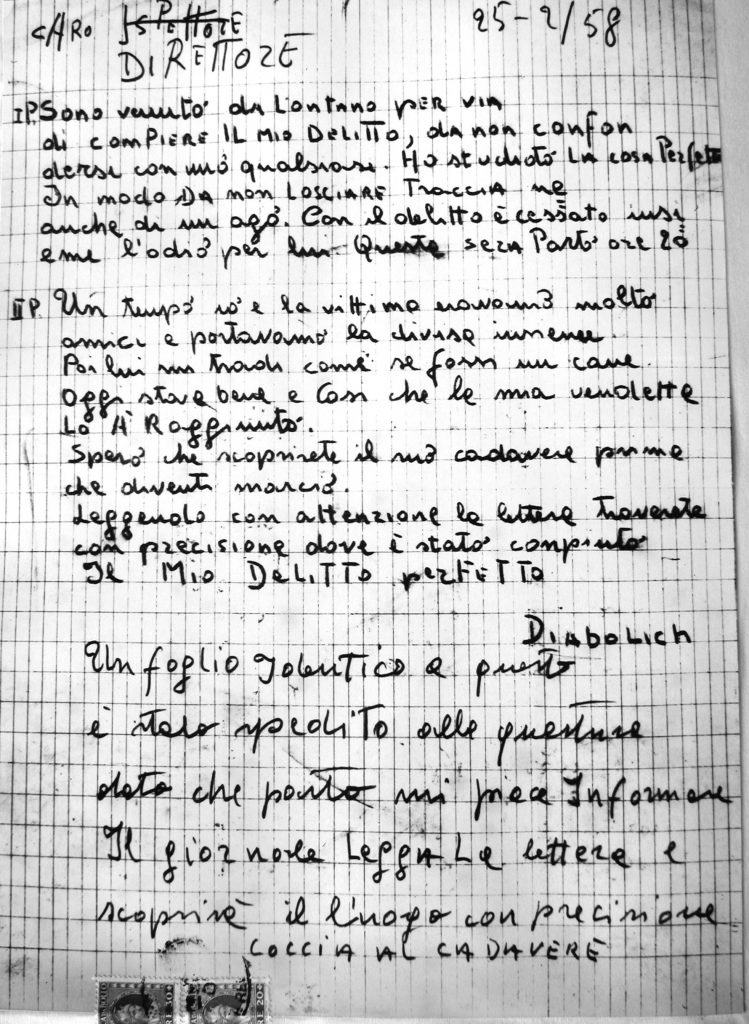 CARO ISPETTORE 25-2/58
DIRETTORE
IP. Sono venuto da Lontano PER VIA
di comPIERE IL MIO DELITTO, da non confon
dersi con uno qualsiasi. Ho studiato LA cosa Perfetta
In modo DA non LOSCIARE TRACCIA ne
anche di un ago. Con il delitto è cessato insi
eme l'odio per lui Questa sera Parto ore 20
IIP. Un tempo io e la vittima eravamo molto
amici e portavamo la divisa insieme
Poi lui mi tradì come se fossi un cane.
Oggi stava bene e Così che la mia vendetta
Lo A' Raggiunto.
Spero che scoprirete il suo cadavere prima
che diventi marcio.
Leggendo con attenzione la lettera troverete
con precisione dove è stato compiuto
Il Mio DeLITTO perFETTO
DIABOLICH
Un foglio Identico a questo
è stato spedito alla questura
dato che parto mi piace Informare
Il giornale LeggA La lettera e
scoprirà il luogo con precisione
COCCIA AL CADAVERE